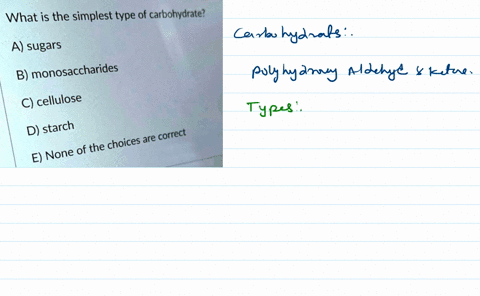 What is the simplest type of carbohydrate?
A) sugars
B) monosaccharides
C) cellulose
D) starch
E) None of the choices are correct
Carbohydrats:.
Polyhydroxy Aldehyde & Ketone.
Types:.